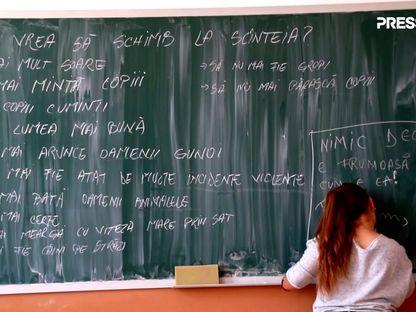 VREA SĂ SCHIMB LA SCÎNTEIA?
MULT SOARE
MAI MINTĂ COPIII
COPII CUMINȚI
LUMEA MAI BUNĂ
MAI ARUNCE OAMENII GUNOI
MAI FIE ATAT DE MULTE INCIDENTE VIOLENTE
MAI BATĂ OAMENII ANIMALELE
MAI CERTE
MAI MEARGĂ CU VITEZĂ MARE PRIN SAT
FIE CÂINI PE STRĂZI
→ SĂ NU MAI FIE GROPI
→ SĂ NU MAI PĂRĂSCĂ COPIII
NIMIC
E FRUMOASĂ
CUM E EA!
PRESS